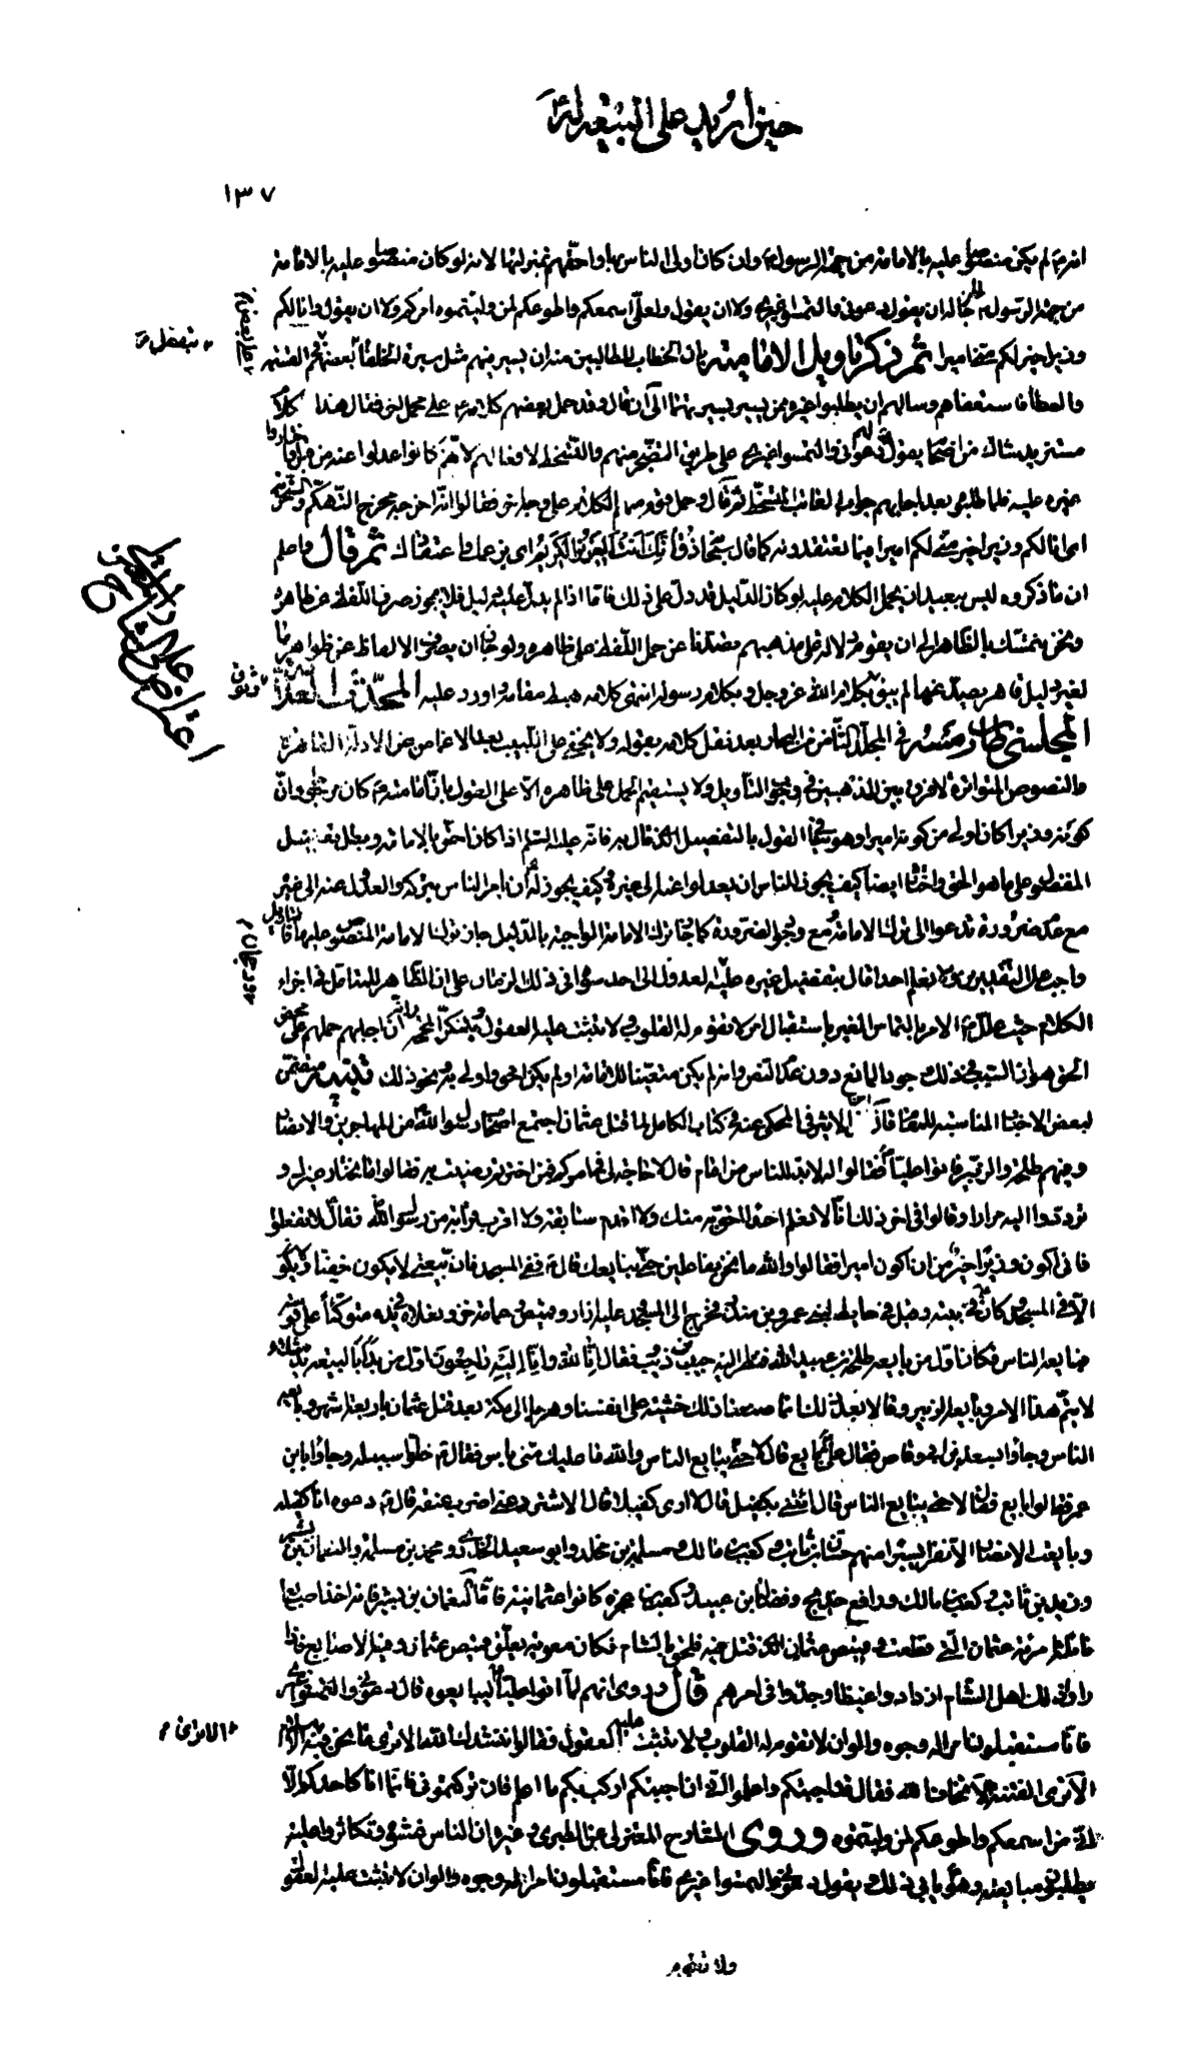 حين أُريد على البيعة له
١٣٧
انه لم يكن منصوصا عليه بالامامة من جهة الرسول وان كان اولى الناس بها واحقهم بمنزلتها لانه لو كان منصوصا عليه بالامامة
من جهة الرسول لما جاز له ان يقول دعوني والتمسوا غيري ولا ان يقول ولعلى اسمعكم واطوعكم لمن وليتموه امركم ولا ان يقول وانا لكم
وزيرا خير لكم منى اميرا ثم ذكر تاويل الامامية بان الخطاب للطالبين منه ان يسير فيهم مثل سيرة الخلفاء بعضهم الفتنة
والعطا فاستعفاهم وسالهم ان يطلبوا غيره ممن يسير بسيرتهما الى ان قال وقد حمل بعضهم كلامه على محمل اخر فقال هذا كلام
مستزيد شاك من اصحابه يقول لهم دعوني والتمسوا غيري على طريق التضجر منهم والتسخط لافعالهم لانهم كانوا عدلوا عنه من قبل واختاروا
غيره عليه فلما طلبوه بعد اجابهم جواب العاتب المتسخط ثم قال وحمل قوم منهم الكلام على وجه اخر فقالوا انه اخرجه مخرج التهكم والسخرية
اى انا لكم وزيرا خير منى لكم اميرا فيما تعتقدونه كما قال سبحانه ذق انك انت العزيز الكريم اى بزعمك واعتقادك ثم قال واعلم
ان ما ذكروه ليس ببعيد ان يحمل الكلام عليه لو كان الدليل قد دل على ذلك فاما اذا لم يدل عليه دليل فلا يجوز صرف اللفظ عن ظاهره
ونحن نتمسك بالظاهر الا ان يقوم دلالة على مذهبهم تصدنا عن حمل اللفظ على ظاهره ولو جاز ان يصرف الالفاظ عن ظواهرها
لغير دليل قاهر يصدف عنها لم يبق وثوق بكلام الله عز وجل وبكلام رسوله انتهى كلامه هبط مقامه واورد عليه المحدث العلامة
المجلسى طاب رمسه في المجلد الثامن من البحار بعد نقل كلامه بقوله ولا يخفى على اللبيب بعد الاغماض عن الادلة القاهرة
والنصوص المتواترة لا فرق بين المذهبين في وجوب التاويل ولا يستقيم الحمل على ظاهره الا على القول بان امامته كان مرجوحا وان
كونه وزيرا كان اولى من كونه اميرا وهو ينافى القول بالتفضيل الذى قال به فانه عليه السلم اذا كان احق بالامامة وبطل تفضيل
المفضول على ما هو الحق واختاره ايضا كيف يجوز للناس ان يعدلوا عنه الى غيره وكيف يجوز له ان يامر الناس بتركه والعدول عنه الى غيره
مع عدم ضرورة تدعوا الى ترك الامامة ومع وجود الضرورة كما جاز ترك الامامة الواجبة بالدليل جاز ترك الامامة المنصوص عليها فالتاويل
واجب على التقديرين ولا نعلم احدا قال بتفضيل غيره عليه لعدول الى احد سواه في ذلك الزمان على ان الظاهر للمتامل في اجزاء
الكلام حيث علل الامر بالتماس الغير باستقبال امر لا تقوم له القلوب ولا تثبت عليه العقول وتنكر المحجة وانه ان اجابهم حملهم على محض
الحق هو ان السبب في ذلك وجود المانع دون عدم النص وانه لم يكن متعينا للامامة او لم يكن احق واولى به ونحو ذلك تنبيه متضمن
لبعض الاخبار المناسبة للمقام قال ابن الاثير في المحكى عنه في كتاب الكامل لما قتل عثمان اجتمع اصحاب رسول الله من المهاجرين والانصار
وفيهم طلحة والزبير فاتوا عليا فقالوا له لا بد للناس من امام قال لا حاجة لى في امركم فمن اخترتم رضيت به فقالوا ما نختار غيرك و
ترددوا اليه مرارا وقالوا في اخر ذلك انا لا نعلم احدا احق به منك ولا اقدم سابقة ولا اقرب قرابة من رسول الله فقال لا تفعلوا
فانى اكون وزيرا خير من ان اكون اميرا فقالوا والله ما نحن بفاعلين حتى نبايعك قال ففى المسجد فان بيعتى لا يكون خفيا ولا يكون
الا في المسجد وكان في بيته وقيل في حايط لبنى عمرو بن مبذول فخرج الى المسجد عليه ازار وقميص وعمامة خز ونعلاه في يده متوكئا على قوسه
فبايعه الناس فكان اول من بايعه طلحة بن عبيد الله فنظر اليه حبيب بن ذويب فقال انا لله وانا اليه راجعون اول من بدا بالبيعة يد شلاء
لا يتم هذا الامر وبايعه الزبير وقالا بعد ذلك انما صنعنا ذلك خشية على انفسنا وهربا الى مكة بعد قتل عثمان باربعة اشهر وبايعه
الناس وجاؤا بسعد بن ابى وقاص فقال على بايع قال لا حتى يبايع الناس والله ما عليك منى باس فقال خلوا سبيله وجاؤا بابن
عمر فقالوا بايع فقال لا حتى يبايع الناس قال ائتنى بكفيل قال لا ارى كفيلا قال الاشتر دعنى اضرب عنقه قال دعوه انا كفيله
وبايعت الانصار الا نفرا يسيرا منهم حسان بن ثابت وكعب بن مالك ومسلمة بن مخلد وابو سعيد الخدرى ومحمد بن مسلمة والنعمان بن بشير
وزيد بن ثابت وكعب بن مالك ورافع بن خديج وفضالة بن عبيد وكعب بن عجرة كانوا عثمانية فاما النعمان بن بشير فانه اخذ اصابع
نائلة امراة عثمان التى قطعت وقميص عثمان الذى قتل فيه فلحق بالشام فكان معوية يعلق قميص عثمان وفيه الاصابع فاذا
راوا ذلك اهل الشام ازدادوا غيظا وجدوا في امرهم قال وروى انهم لما اتوا عليا ليبايعوه قال دعوني والتمسوا غيرى
فانا مستقبلون امرا له وجوه والوان لا تقوم له القلوب ولا تثبت عليه العقول فقالوا ننشدك الله الا ترى ما نحن فيه الا ترى الاسلام
الا ترى الفتنة الا تخاف الله فقال قد اجبتكم واعلموا انى ان اجبتكم اركب بكم ما اعلم فان تركتموني فانما انا كاحدكم الا
انى من اسمعكم واطوعكم لمن وليتموه وروى الشارح المعتزلى عن الطبرى وغيره ان الناس غشوه وتكاثروا عليه
يطلبون مبايعته وهو يابى ذلك ويقول دعوني والتمسوا غيرى فانا مستقبلون امرا له وجوه والوان لا تثبت عليه العقول
ولا تقوم
بتفضل
على بعض
اعتراض على الشارح
وثوق
الا ترى